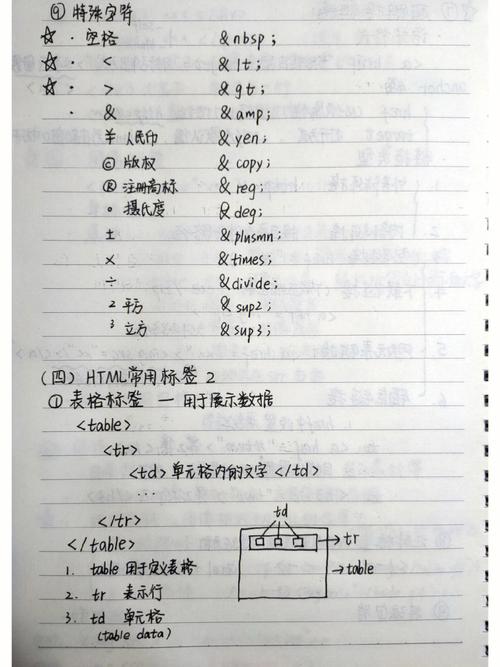 ⑨ 特殊字符
☆ · 空格 &nbsp;
☆ · < &lt;
☆ · > &gt;
· & &amp;
¥ 人民币 &yen;
© 版权 &copy;
® 注册商标 &reg;
° 摄氏度 &deg;
± &plusmn;
× &times;
÷ &divide;
² 平方 &sup2;
³ 立方 &sup3;
(四) HTML常用标签 2
① 表格标签 — 用于展示数据
<table>
<tr>
<td> 单元格内的文字 </td>
...
</tr>
</table>
td
→tr
→table
1. table 用于定义表格
2. tr 表示行
3. td 单元格
(table data)